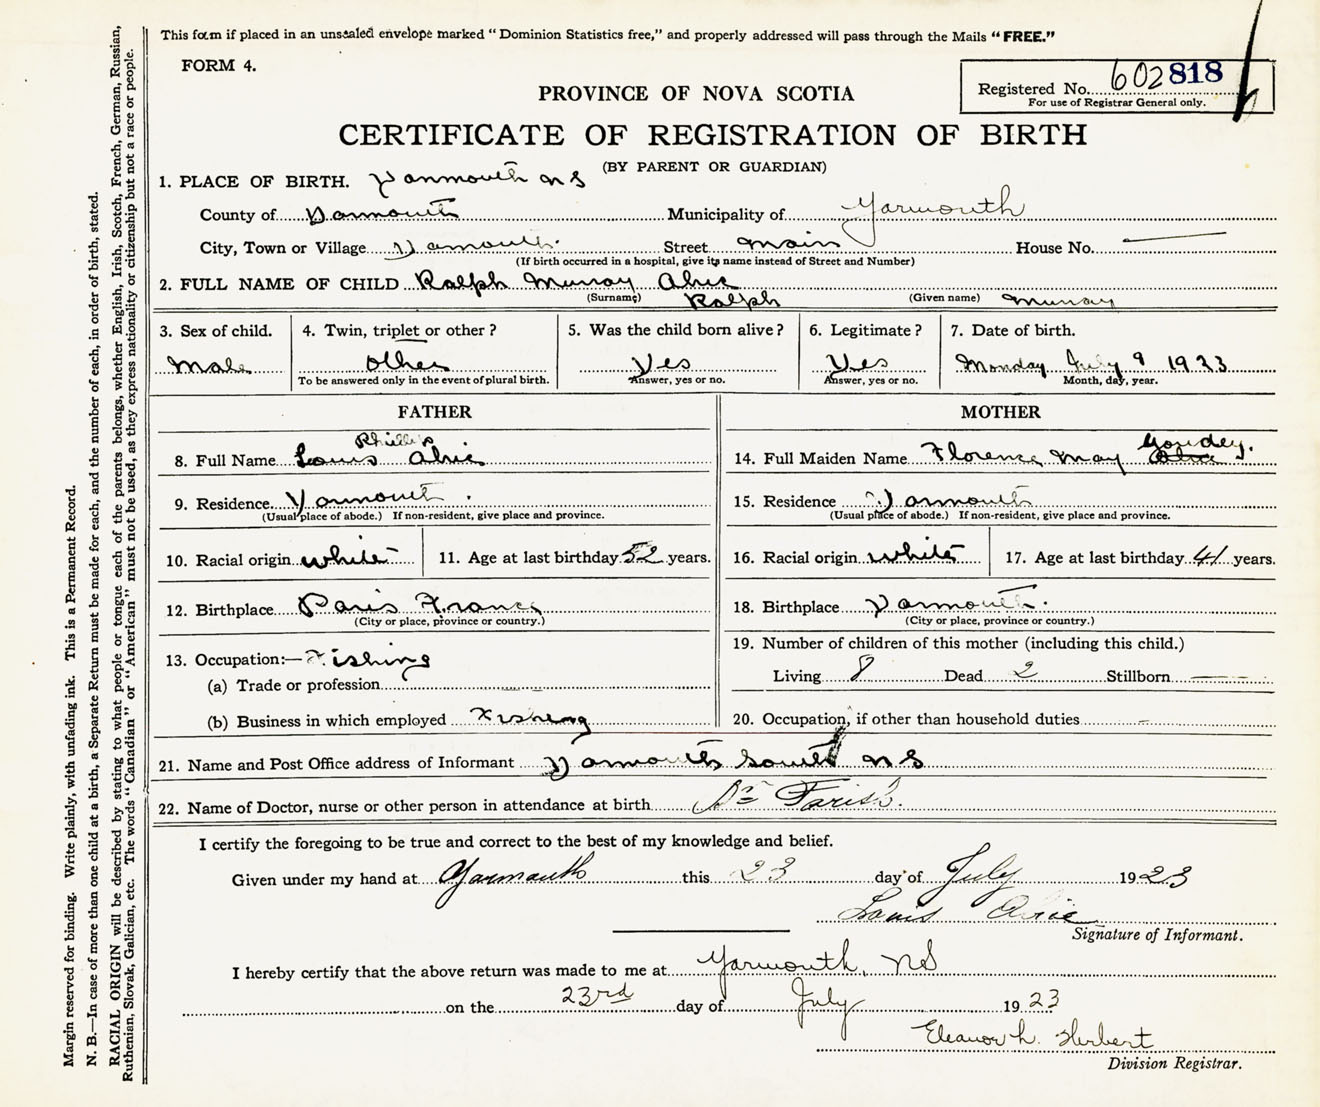 This form if placed in an unsealed envelope marked "Dominion Statistics free," and properly addressed will pass through the Mails "FREE."
FORM 4.
Registered No. 602818
For use of Registrar General only.
PROVINCE OF NOVA SCOTIA
CERTIFICATE OF REGISTRATION OF BIRTH
(BY PARENT OR GUARDIAN)
1. PLACE OF BIRTH. Yarmouth N S
County of Yarmouth Municipality of Yarmouth
City, Town or Village Yarmouth Street Main House No. —
(If birth occurred in a hospital, give its name instead of Street and Number)
2. FULL NAME OF CHILD Ralph Murray
(Surname) Ralph (Given name) Murray
3. Sex of child. 4. Twin, triplet or other? 5. Was the child born alive? 6. Legitimate? 7. Date of birth.
Male other Yes Yes Monday July 9 1923
To be answered only in the event of plural birth. Answer, yes or no. Answer, yes or no. Month, day, year.
FATHER MOTHER
Phillip Goudey.
8. Full Name Louis 14. Full Maiden Name Florence May
9. Residence Yarmouth. 15. Residence Yarmouth
(Usual place of abode.) If non-resident, give place and province. (Usual place of abode.) If non-resident, give place and province.
10. Racial origin white 11. Age at last birthday 52 years. 16. Racial origin white 17. Age at last birthday 41 years.
12. Birthplace Paris France 18. Birthplace Yarmouth.
(City or place, province or country.) (City or place, province or country.)
13. Occupation:— Fishing 19. Number of children of this mother (including this child.)
(a) Trade or profession Living 8 Dead 2 Stillborn —
(b) Business in which employed Fisheng 20. Occupation, if other than household duties –
21. Name and Post Office address of Informant Yarmouth South N S
22. Name of Doctor, nurse or other person in attendance at birth Dr Farish.
I certify the foregoing to be true and correct to the best of my knowledge and belief.
Given under my hand at Yarmouth this 23 day of July 1923
Louis
Signature of Informant.
I hereby certify that the above return was made to me at Yarmouth, NS
on the 23rd day of July 1923
Eleanor L. Herbert
Division Registrar.
Margin reserved for binding. Write plainly, with unfading ink. This is a Permanent Record.
N. B.—In case of more than one child at a birth, a Separate Return must be made for each, and the number of each, in order of birth, stated.
RACIAL ORIGIN will be described by stating to what people or tongue each of the parents belongs, whether English, Irish, Scotch, French, German, Russian,
Ruthenian, Slovak, Galician, etc. The words "Canadian" or "American" must not be used, as they express nationality or citizenship but not a race or people.